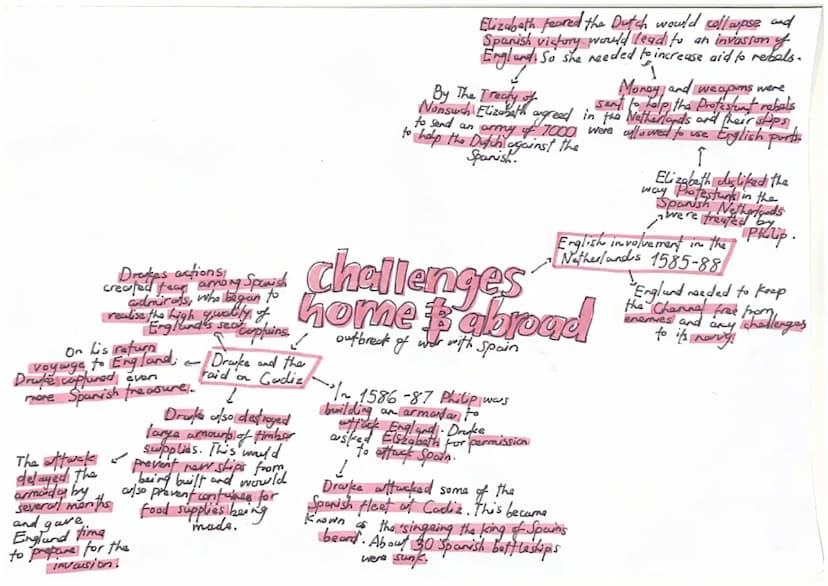 Elizabeth feared the Dutch would collapse and
Spanish victory would lead to an invasion of
England. So she needed to increase aid to rebels.
By The Treaty of
Nonsuch Elizabeth agreed
to send an army of 7000
to help the Dutch against the
Spanish.
Money and weapons were
sent to help the Protestant rebels
in the Netherlands and their ships
were allowed to use English ports.
Elizabeth disliked the
way Protestants in the
Spanish Netherlands
were treated by
Philip.
English involvement in the
Netherlands 1585-88
England needed to keep
the Channel free from
enemies and any challenges
to its navy.
challenges
home & abroad
outbreak of war with Spain
Drakes actions
created fear among Spanish
admirals, who began to
realise the high quality of
England's sea captains.
On his return
voyage to England,
Drake captured even
more Spanish treasure.
Drake and the
raid on Cadiz
In 1586-87 Philip was
building an armada to
attack England. Drake
asked Elizabeth for permission
to attack Spain.
Drake attacked some of the
Spanish fleet at Cadiz. This became
known as the 'singeing the king of Spains
beard. About 30 Spanish battleships
were sunk.
Drake also destroyed
large amounts of timber
supplies. This would
prevent new ships from
being built and would
also prevent containers for
food supplies being
made.
The attack
delayed the
armada by
several months
and gave
England time
to prepare for the
invasion.